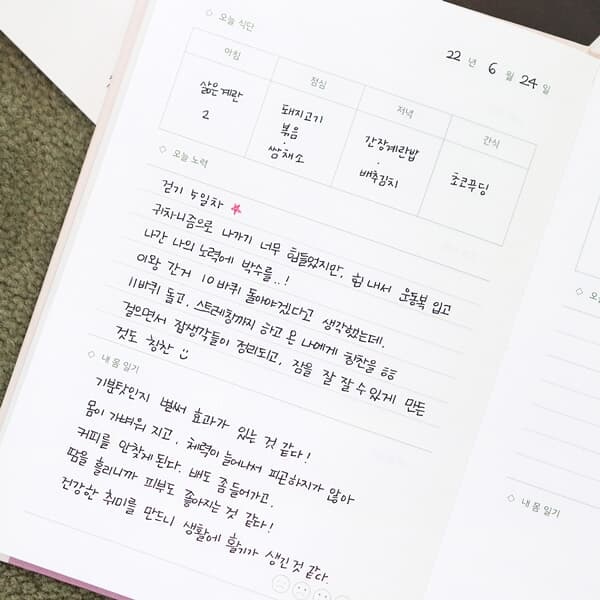 ◇ 오늘 식단
22 년 6 월 24 일
아침 점심 저녁 간식
삶은계란
2
돼지고기
볶음
·
쌈채소
간장계란밥
·
배추김치
초코푸딩
◇ 오늘 노력
걷기 5일차
귀차니즘으로 나가기 너무 힘들었지만, 힘 내서 운동복 입고
나간 나의 노력에 박수를..!
이왕 간거 10바퀴 돌아야겠다고 생각했는데,
11바퀴 돌고, 스트레칭까지 하고 온 나에게 칭찬을 ㅎㅎ
걸으면서 잡생각들이 정리되고, 잠을 잘 잘 수 있게 만든
것도 칭찬
◇ 내 몸 일기
기분탓인지 벌써 효과가 있는 것 같다!
몸이 가벼워 지고, 체력이 늘어나서 피곤하지가 않아
커피를 안찾게 된다. 배도 좀 들어가고,
땀을 흘리니까 피부도 좋아지는 것 같다!
건강한 취미를 만드니 생활에 활기가 생긴것 같다.
◇ 오늘
◇ 내 몸 일기